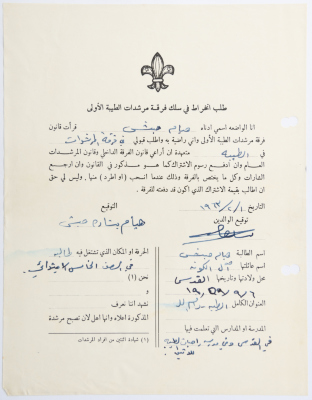 طلب انخراط في سلك فرقة مرشدات الطيبة الأولى
انا الواضعه اسمي ادناه هيام حبش قرأت قانون
فرقة مرشدات الطيبة الأولى واني راضية به واطلب قبولي في فرقة المرشدات
في الطيبة متعهدة ان أراعي قانون الفرقة الداخلي وقانون المرشدات
العام وان أدفع رسوم الاشتراك كما هو مذكور في القانون وان ارجع
الشارات وكل ما يختص بالفرقة وذلك عندما انسحب (أو اطرد) منها. وليس لي حق
ان اطالب بقيمة الاشتراك الذي اكون قد دفعته للفرقة.
التاريخ
توقيع الوالدين
التوقيع
هيام بشاره حبش
اسم الطالبة هيام حبش
اسم عائلتها
محل ولادتها وتاريخها القدس
١٩٤٩/٩/٦
العنوان الكامل الطيبه
المدرسة او المدارس التي تعلمت فيها
في القدس وفي مدرسة راهبات الطيبة
الحرفة او المكان الذي تشتغل فيه طالبه
في الصف الخامس الابتدائي
نحن (١)
و
نشهد أننا نعرف
المذكورة اعلاه وانها اهل لان تصبح مرشدة
(١) شهادة اثنتين من افراد المرشدات